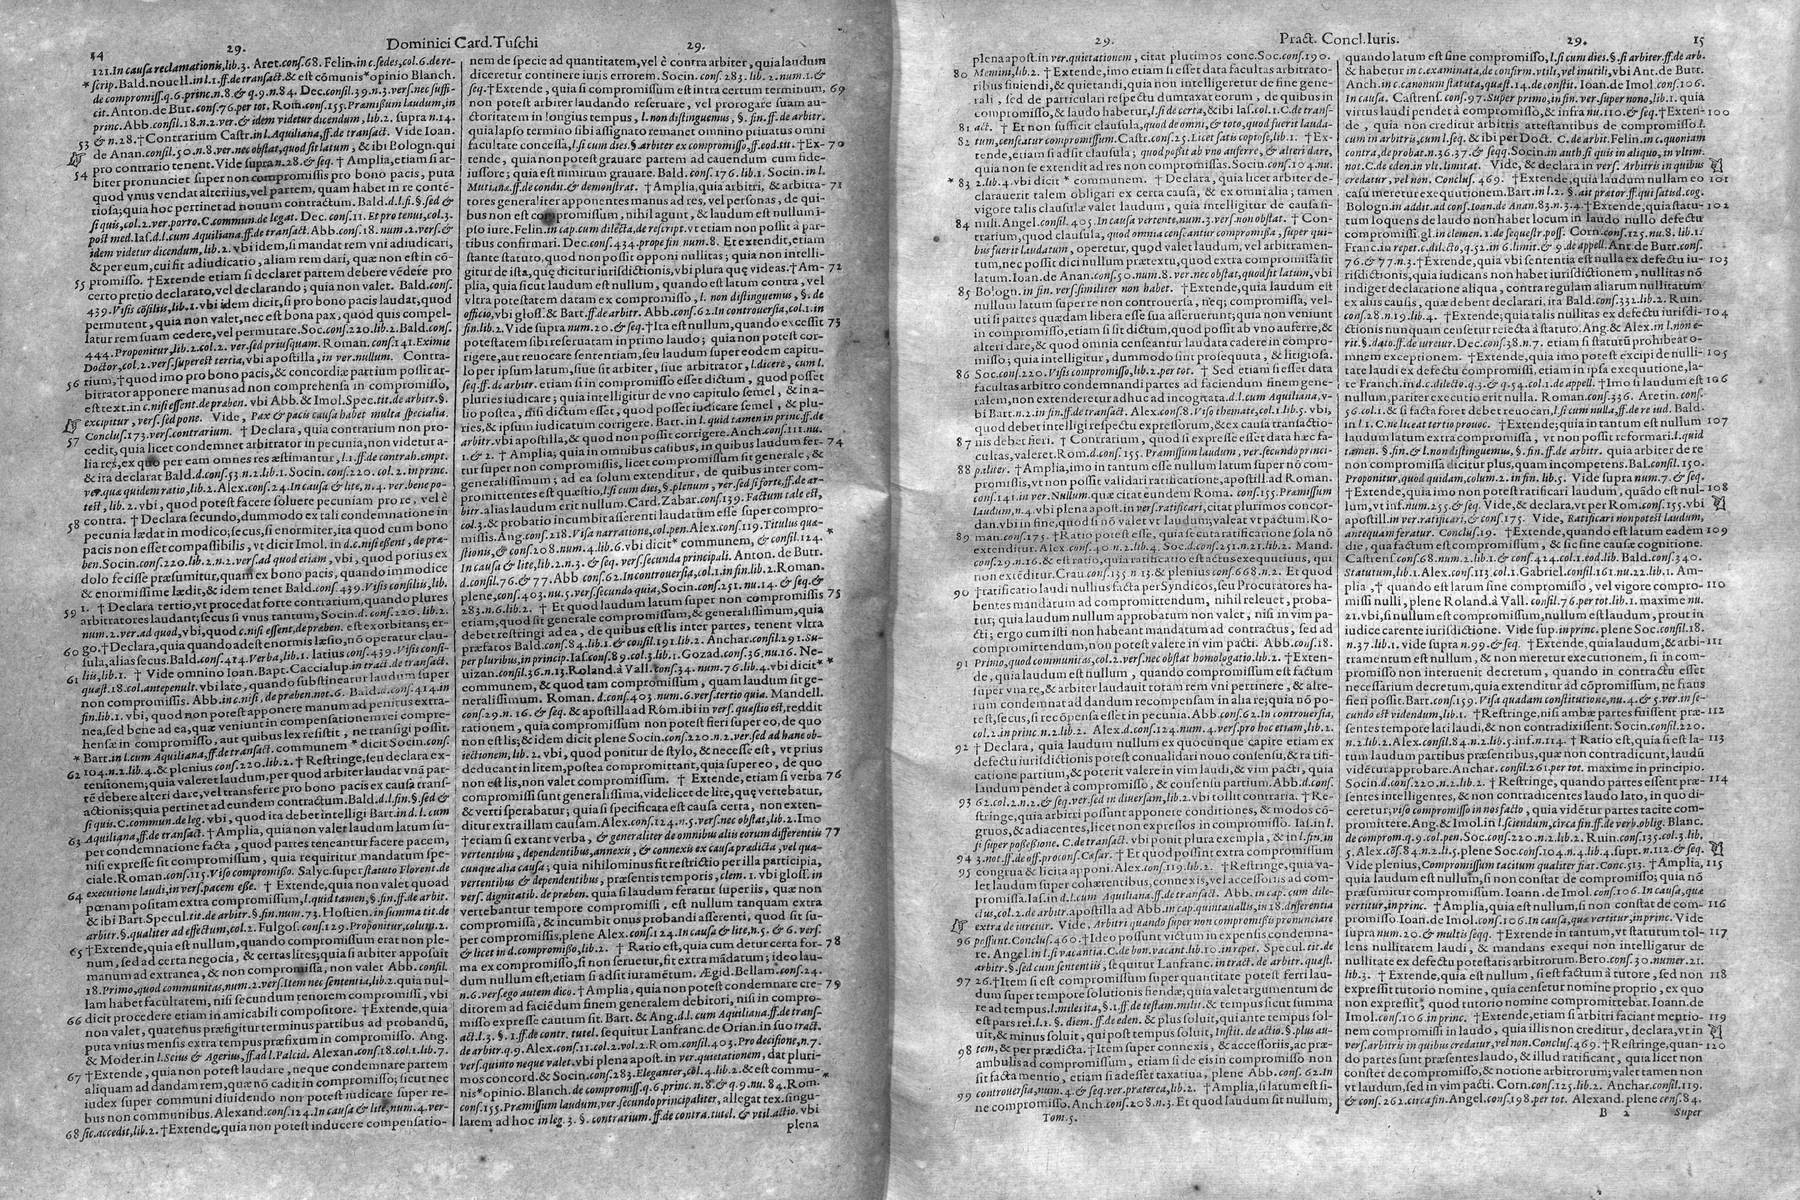 14 29. Dominici Card. Tuschi 29.
121. In causa reclamationis, lib. 3. Aret. cons. 68. Felin. in c. sedes, col. 6. de re-
* scrip. Bald. nouell. in l. 1. ff. de transact. & est cõmunis * opinio Blanch.
de compromiss. q. 6. princ. n. 8. & q. 9. n. 84. Dec. consil. 39. n. 3. ver. nec suffi-
cit. Anton. de But. cons. 76. per tot. Rom. cons. 155. Pramissum laudum, in
princ. Abb. consil. 18. n. 2. ver. & idem videtur dicendum, lib. 2. supra n. 14.
53 & n. 28. † Contrarium Castr. in l. Aquiliana, ff. de transact. Vide Ioan.
de Anan. consil. 50. n. 8. ver. nec obstat, quod sit latum, & ibi Bologn. qui
54 pro contrario tenent. Vide supra n. 28. & seq. † Amplia, etiam si ar-
biter pronunciet super non compromissis pro bono pacis, puta
quod vnus vendat alteri ius, vel partem, quam habet in re contẽ-
tiosa; quia hoc pertinet ad nouum contractum. Bald. d. l. si. §. sed &
si quis, col. 2. ver. porro. C. commun. de legat. Dec. cons. 11. Et pro tenui, col. 3.
post med. Ias. d. l. cum Aquiliana. ff. de transact. Abb. cons. 18. num. 2. vers. &
idem videtur dicendum, lib. 2. vbi idem, si mandat rem vni adiudicari,
& per eum, cui fit adiudicatio, aliam rem dari, quæ non est in cõ-
55 promisso. † Extende etiam si declaret partem debere vẽdere pro
certo pretio declarato, vel declarando; quia non valet. Bald. cons.
439. Visis cõsiliis, lib. 1. vbi idem dicit, si pro bono pacis laudat, quod
permutent, quia non valet, nec est bona pax, quod quis compel-
latur rem suam cedere, vel permutare. Soc. cons. 220. lib. 2. Bald. cons.
444. Proponitur, lib. 2. col. 2. vers. sed priusquam. Roman. cons. 141. Eximie
Doctor, col. 2. vers. superest tertia, vbi apostilla, in ver. nullum. Contra-
56 rium, † quod imo pro bono pacis, & concordiæ partium possit ar-
bitrator apponere manus ad non comprehensa in compromisso,
est text. in c. nisi essent. de præben. vbi Abb. & Imol. Spec. tit. de arbitr. §.
excipitur, vers. sed pone. Vide, Pax & pacis causa habet multa specialia.
Conclus. 173. vers. contrarium. † Declara, quia contrarium non pro-
57 cedit, quia licet condemnet arbitrator in pecunia, non videtur a-
lia res, ex quo per eam omnes res æstimantur, l. 1. ff. de contrah. empt.
& ita declarat Bald. d. cons. 53. n. 2. lib. 1. Socin. cons. 220. col. 2. in princ.
ver. quæ quidem ratio, lib. 2. Alex. cons. 24. In causa & lite, n. 4. ver. bene po-
test, lib. 2. vbi, quod potest facere soluere pecuniam pro re, vel è
58 contra. † Declara secundo, dummodo ex tali condemnatione in
pecunia lædat in modico; secus, si enormiter, ita quod cum bono
pacis non esset compassibilis, vt dicit Imol. in d. c. nisi essent, de præ-
ben. Socin. cons. 220. lib. 2. n. 2. vers. ad quod etiam, vbi, quod potius ex
dolo fecisse præsumitur, quam ex bono pacis, quando immodice
& enormissime lædit, & idem tenet Bald. cons. 439. Visis consiliis, lib.
59 1. † Declara tertio, vt procedat forte contrarium, quando plures
arbitratores laudant; secus si vnus tantum, Socin. d. cons. 220. lib. 2.
num. 2. ver. ad quod, vbi, quod c. nisi essent, de præben. est exorbitans; er-
60 go. † Declara, quia quando adest enormis læsio, nõ operatur clau-
sula, alias secus. Bald. cons. 414. Verba, lib. 1. latius cons. 439. Visis consi-
61 liis, lib. 1. † Vide omnino Ioan. Bapt. Caccialup. in tract. de transact.
quæst. 18. col. antepenult. vbi late, quando substineatur laudum super
non compromissis. Abb. in c. nisi, de præben. not. 6. Bald. d. cons. 414. in
fin. lib. 1. vbi, quod non potest apponere manum ad penitus extra-
nea, sed bene ad ea, quæ veniunt in compensationem rei compre-
hensæ in compromisso, aut quibus lex resistit, ne transigi possit.
* Bart. in l. cum Aquiliana, ff. de transact. communem * dicit Socin. cons.
62 104. n. 2. lib. 4. & plenius cons. 220. lib. 2. † Restringe, seu declara ex-
tensionem; quia valeret laudum, per quod arbiter laudat vnã par-
tẽ debere alteri dare, vel transferre pro bono pacis ex causa trans-
actionis; quia pertinet ad eundem contractum. Bald. d. l. fin. §. sed &
si quis. C. commun. de leg. vbi, quod ita debet intelligi Bart. in d. l. cum
63 Aquiliana, ff. de transact. † Amplia, quia non valet laudum latum su-
per condemnatione facta, quod partes teneantur facere pacem,
nisi expresse sit compromissum, quia requiritur mandatum spe-
ciale. Roman. cons. 115. Viso compromisso. Salyc. super statuto Florent. de
64 executione laudi, in vers. pacem esse. † Extende, quia non valet quoad
pœnam positam extra compromissum, l. quid tamen, §. fin. ff. de arbitr.
& ibi Bart. Specul. tit. de arbitr. §. fin. num. 73. Hostien. in summa tit. de
arbitr. §. qualiter ad effectum, col. 2. Fulgos. cons. 129. Proponitur, colum. 2.
65 † Extende, quia est nullum, quando compromissum erat non ple-
num, sed ad certa negocia, & certas lites; quia si arbiter apposuit
manum ad extranea, & non compromissa, non valet Abb. consil.
18. Primo, quod communitas, num. 2. vers. Item nec sententia, lib. 2. quia nul-
lam habet facultatem, nisi secundum tenorem compromissi, vbi
66 dicit procedere etiam in amicabili compositore. † Extende, quia
non valet, quatenus præfigitur terminus partibus ad probandũ,
puta vnius mensis extra tempus præfixum in compromisso. Ang.
& Moder. in l. Seius & Agerius, ff. ad l. Falcid. Alexan. cons. 18. col. 1. lib. 7.
67 † Extende, quia non potest laudare, neque condemnare partem
aliquam ad dandam rem, quæ nõ cadit in compromisso; sicut nec
iudex super communi diuidendo non potest iudicare super re-
bus non communibus. Alexand. cons. 124. In causa & lite, num. 4. ver-
68 sic. accedit, lib. 2. † Extende, quia non potest inducere compensatio-
nem de specie ad quantitatem, vel è contra arbiter, quia laudum
diceretur continere iuris errorem. Socin. cons. 283. lib. 2. num. 1. &
seq. † Extende, quia si compromissum est intra certum terminum, 69
non potest arbiter laudando reseruare, vel prorogare suam au-
ctoritatem in longius tempus, l. non distinguemus, §. fin. ff. de arbitr.
quia lapso termino sibi assignato remanet omnino priuatus omni
facultate concessa, l. si cum dies. §. arbiter ex compromisso, ff. eod. tit. † Ex- 70
tende, quia non potest grauare partem ad cauendum cum fide-
iussore; quia est nimirum grauare. Bald. cons. 176. lib. 1. Socin. in l.
Mutiana. ff. de condit. & demonstrat. † Amplia, quia arbitri, & arbitra- 71
tores generaliter apponentes manus ad res, vel personas, de qui-
bus non est compromissum, nihil agunt, & laudum est nullum i-
pso iure. Felin. in cap. cum dilecta, de rescript. vt etiam non possit à par-
tibus confirmari. Dec. cons. 434. prope fin num. 8. Et extendit, etiam
stante statuto, quod non possit opponi nullitas; quia non intelli-
gitur de ista, quę dicitur iurisdictionis, vbi plura quę videas. † Am- 72
plia, quia sicut laudum est nullum, quando est latum contra, vel
vltra potestatem datam ex compromisso, l. non distinguemus, §. de
officio, vbi gloss. & Bart. ff. de arbitr. Abb. cons. 62. In controuersia, col. 1. in
fin. lib. 2. Vide supra num. 20. & seq. † Ita est nullum, quando excessit 73
potestatem sibi reseruatam in primo laudo; quia non potest cor-
rigere, aut reuocare sententiam, seu laudum super eodem capitu-
lo per ipsum latum, siue sit arbiter, siue arbitrator, l. dicere, cum l.
seq. ff. de arbitr. etiam si in compromisso esset dictum, quod posset
pluries iudicare; quia intelligitur de vno capitulo semel, & in a-
lio postea, nisi dictum esset, quod posset iudicare semel, & plu-
ries, & ipsum iudicatum corrigere. Bart. in l. quid tamen in princ. ff. de
arbitr. vbi apostilla, & quod non possit corrigere. Anch. cons. 111. nu.
1. & 2. † Amplia; quia in omnibus casibus, in quibus laudum fer- 74
tur super non compromissis, licet compromissum sit generale, &
generalissimum; ad ea solum extenditur, de quibus inter com-
promittentes est quæstio, l. si cum dies, §. plenum, ver. sed si forte, ff. de ar-
bitr. alias laudum erit nullum. Card. Zabar. cons. 139. Factum tale est,
col. 3. & probatio incumbit asserenti laudatum esse super compro-
missis. Ang. cons. 218. Visa narratione, col. pen. Alex. cons. 119. Titulus quæ- *
stionis, & cons. 208. num. 4. lib. 6. vbi dicit * communem, & consil. 124.
In causa & lite, lib. 2. n. 3. & seq. vers. secunda principali. Anton. de Butr.
d. consil. 76. & 77. Abb cons. 62. In controuersia, col. 1. in fin. lib. 2. Roman.
plene, cons. 403. nu. 5. vers. secundo quia, Socin. cons. 251. nu. 14. & seq. &
283. n. 6. lib. 2. † Et quod laudum latum super non compromissis 75
etiam, quod sit generale compromissum, & generalissimum, quia
debet restringi ad ea, de quibus est lis inter partes, tenent vltra
præfatos Bald. cons. 84. lib. 1. & consil. 191. lib. 2. Anchar. consil. 291. Su-
per pluribus, in princip. Ias. cons. 89. col. 3. lib. 1. Gozad. cons. 36. nu. 16. Ne-
uizan. consil. 36. n. 13. Roland. à Vall. cons. 34. num. 76. lib. 4. vbi dicit * *
communem, & quod tam compromissum, quam laudum sit ge-
neralissimum. Roman. d. cons. 403. num. 6. vers. tertio quia. Mandell.
cons. 29. n. 16. & seq. & apostilla ad Rom. ibi in vers. quæstio est, reddit
rationem, quia compromissum non potest fieri super eo, de quo
non est lis; & idem dicit plene Socin. cons. 220. n. 2. vers. sed ad hanc ob-
iectionem, lib. 2. vbi, quod ponitur de stylo, & necesse est, vt prius
deducant in litem, postea compromittant, quia super eo, de quo
non est lis, non valet compromissum. † Extende, etiam si verba 76
compromissi sunt generalissima, videlicet de lite, quę vertebatur,
& verti sperabatur; quia si specificata est causa certa, non exten-
ditur extra illam causam. Alex. cons. 124. n. 5. vers. nec obstat, lib. 2. Imo
† etiam si extant verba, & generaliter de omnibus aliis eorum differentiis 77
vertentibus, dependentibus, annexis, & connexis ex causa prædicta, vel qua-
cunque alia causa; quia nihilominus fit restrictio per illa participia,
vertentibus & dependentibus, præsentis temporis, clem. 1. vbi gloss. in
vers. dignitatib. de præben. quia si laudum feratur super iis, quæ non
vertebantur tempore compromissi, est nullum tanquam extra
compromissa, & incumbit onus probandi asserenti, quod sit su-
per compromissis, plene Alex. cons. 124. In causa & lite, n. 5. & 6. vers.
& licet in d. compromisso, lib. 2. † Ratio est, quia cum detur certa for- 78
ma ex compromisso, si non seruetur, fit extra mãdatum; ideo lau-
dum nullum est, etiam si adsit iuramẽtum. Ægid. Bellam. cons. 24.
n. 6. vers. ego autem dico. † Amplia, quia non potest condemnare cre- 79
ditorem ad faciẽdum finem generalem debitori, nisi in compro-
misso expresse cautum sit. Bart. & Ang. d. l. cum Aquiliana. ff. de trans-
act. l. 3. §. 1. ff. de contr. tutel. sequitur Lanfranc. de Orian. in suo tract.
de arbitr. q. 9. Alex. cons. 11. col. 2. vol. 2. Rom. consil. 403. Pro decisione, n. 7.
vers. quinto neque valet. vbi plena apost. in ver. quietationem, dat pluri-
mos concord. & Socin. cons. 283. Eleganter, col. 4. lib. 2. & est commu- *
nis * opinio. Blanch. de compromiss. q. 6. princ. n. 8. & q. 9. nu. 84. Rom.
cons. 155. Præmissum laudum, ver. secundo principaliter, allegat tex. singu-
larem ad hoc in leg. 3. §. contrarium. ff. de contra. tutel. & vtil. actio. vbi
plena
29. Pract. Concl. Iuris. 29. 15
plena apost. in ver. quietationem, citat plurimos conc. Soc. cons. 190.
80 Memini, lib. 2. † Extende, imo etiam si esset data facultas arbitrato-
ribus finiendi, & quietandi, quia non intelligeretur de fine gene-
rali, sed de particulari respectu dumtaxat eorum, de quibus in
compromisso, & laudo habetur, l. si de certa, & ibi Ias. col. 1. C. de trans-
81 act. † Et non sufficit clausula, quod de omni, & toto, quod fuerit lauda-
82 tum, censeatur compromissum. Castr. cons. 25. Licet satis copiose, lib. 1. † Ex-
tende, etiam si ad sit clausula; quod possit ab vno auferre, & alteri dare,
quia non se extendit ad res non compromissas. Socin. cons. 104. nu.
* 83 2. lib. 4. vbi dicit * communem. † Declara, quia licet arbiter de-
clarauerit talem obligari ex certa causa, & ex omni alia; tamen
vigore talis clausulæ valet laudum, quia intelligitur de causa si-
84 mili. Angel. consil. 405. In causa vertente, num. 3. ver. non obstat. † Con-
trarium, quod clausula, quod omnia censeantur compromissa, super qui-
bus fuerit laudatum, operetur, quod valet laudum, vel arbitramen-
tum, nec possit dici nullum prætextu, quod extra compromissa sit
latum. Ioan. de Anan. cons. 50. num. 8. ver. nec obstat, quod sit latum, vbi
85 Bologn. in fin. ver. similiter non habet. † Extende, quia laudum est
nullum latum super re non controuersa, neq; compromissa, vel-
uti si partes quædam libera esse sua asseruerunt; quia non veniunt
in compromisso, etiam si sit dictum, quod possit ab vno auferre, &
alteri dare, & quod omnia censeantur laudata cadere in compro-
misso; quia intelligitur, dummodo sint prosequuta, & litigiosa.
86 Soc. cons. 220. Visis compromisso, lib. 2. per tot. † Sed etiam si esset data
facultas arbitro condemnandi partes ad faciendum finem gene-
ralem, non extenderetur adhuc ad incognata. d. l. cum Aquiliana, v-
bi Bart. n. 2. in fin. ff. de transact. Alex. cons. 8. Viso themate, col. 1. lib. 5. vbi,
quod debet intelligi respectu expressorum, & ex causa transactio-
87 nis debet fieri. † Contrarium, quod si expresse esset data hæc fa-
cultas, valeret. Rom. d. cons. 155. Præmissum laudum, ver. secundo princi-
88 paliter. † Amplia, imo in tantum esse nullum latum super nõ com-
promissis, vt non possit validari ratificatione, apostill. ad Roman.
cons. 141. in ver. Nullum. quæ citat eundem Roma. cons. 155. Præmissum
laudum, n. 4. vbi plena apost. in vers. ratificari, citat plurimos concor-
dan. vbi in fine, quod si nõ valet vt laudum, valeat vt pactum. Ro-
89 man. cons. 175. † Ratio potest esse, quia secuta ratificatione sola nõ
extenditur. Alex. cons. 40 n. 2. lib. 4. Soc. d. cons. 251. n. 21. lib. 2. Mand.
cons. 29. n. 16. & est ratio, quia ratificatio est actus exequutiuus, qui
non extẽditur. Crau. cons. 135. n 13. & plenius cons. 668. n. 2. Et quod
90 † ratificatio laudi nullius facta per Syndicos, seu Procuratores ha-
bentes mandatum ad compromittendum, nihil releuet, proba-
tur; quia laudum nullum approbatum non valet, nisi in vim pa-
cti; ergo cum isti non habeant mandatum ad contractus, sed ad
compromittendum, non potest valere in vim pacti. Abb. cons. 18.
91 Primo, quod communitas, col. 2. vers. nec obstat homologatio, lib. 2. † Exten-
de, quia laudum est nullum, quando compromissum est factum
super vna re, & arbiter laudauit totam rem vni pertinere, & alte-
rum condemnat ad dandum recompensam in alia re; quia nõ po-
test, secus, si recõpensa esset in pecunia. Abb. cons. 62. In controuersia,
col. 2. in princ. lib. 2. Alex. d. cons. 124. num. 4. vers. pro hoc etiam, lib. 2.
92 † Declara, quia laudum nullum ex quocunque capite etiam ex
defectu iurisdictionis potest conualidari nouo consensu, & ratifi-
catione partium, & poterit valere in vim laudi, & vim pacti, quia
laudum pendet à compromisso, & consensu partium. Abb. d. cons.
93 62. col. 2. n. 2. & seq. ver. sed in diuersam, lib. 2. vbi tollit contraria. † Re-
stringe, quia arbitri possunt apponere conditiones, & modos cõ-
gruos, & adiacentes, licet non expressos in compromisso. Ias. in l.
si super possessione. C. de transact. vbi ponit plura exempla, & in l. fin. in
94 3. not. ff. de off. procons. Cæsar. † Et quod possint extra compromissum
95 congrua & licita apponi. Alex. cons. 119. lib. 2. † Restringe, quia va-
let laudum super cohærentibus, connexis, vel accessoriis ad com-
promissum. Ias. in d. l. cum Aquiliana. ff. de transact. Abb. in cap. cum dile-
ctus, col. 2. de arbitr. apostilla ad Abb. in cap. quintauallis, in 18. differentia
extra de iureiur. Vide, Arbitri quando super non compromissis pronunciare
96 possunt. Conclus. 460. † Ideo possunt victum in expensis condemna-
re. Angel. in l. si vacantia. C. de bon. vacant. lib. 10. in repet. Specul. tit. de
arbitr. §. sed cum sententiis, sequitur Lanfranc. in tract. de arbitr. quæst.
97 26. † Item si compromissum est super quantitate potest ferri lau-
dum super tempore solutionis fiendæ; quia valet argumentum de
re ad tempus. l. miles ita, §. 1. ff. de testam. milit. & tempus sicut summa
est pars rei. l. 2. §. diem. ff. de eden. & plus soluit, qui ante tempus sol-
uit, & minus soluit, qui post tempus soluit, Instit. de actio. §. plus au-
98 tem, & per prædicta. † Item super connexis, & accessoriis, ac præ-
ambulis ad compromissum, etiam si de eis in compromisso non
sit facta mentio, etiam si adesset taxatiua, plene Abb. cons. 62. In
controuersia, num. 4. & seq. ver. præterea, lib. 2. † Amplia, si latum est si-
99 ne compromisso. Anch. cons. 208. n. 3. Et quod laudum sit nullum,
Tom. 5.
quando latum est sine compromisso, l. si cum dies. §. si arbiter. ff. de arb.
& habetur in c. examinata, de confirm. vtil. vel inutili, vbi Ant. de Butr.
Anch. in c. canonum statuta, quæst. 14. de constit. Ioan. de Imol. cons. 106.
In causa. Castrens. cons. 97. Super primo, in fin. ver. super nono, lib. 1. quia
virtus laudi pendet à compromisso, & infra nu. 110. & seq. † Exten- 100
de, quia non creditur arbitris attestantibus de compromisso. l.
cum in arbitris, cum l. seq. & ibi per Doct. C. de arbit. Felin. in c. quoniam
contra, de probat. n. 36. 37. & seqq. Socin. in auth. si quis in aliquo, in vltim.
not. C. de eden. in vlt. limitat. Vide, & declara in vers. Arbitris in quibus
credatur, vel non. Conclus. 469. † Extende, quia laudum nullam eo 101
casu meretur exequutionem. Bart. in l. 2. §. ait prætor. ff. qui satisd. cog.
Bologn. in addit. ad cons. Ioan. de Anan. 83. n. 3. 4. † Extende, quia statu- 102
tum loquens de laudo non habet locum in laudo nullo defectu
compromissi. gl. in clemen. 1. de sequestr. poss. Corn. cons. 125. nu. 8. lib. 1.
Franc. in repet. c. dilecto, q. 32. in 6. limit. & 9. de appell. Ant. de Butr. cons.
76. & 77. n. 3. † Extende, quia vbi sententia est nulla ex defectu iu- 103
risdictionis, quia iudicans non habet iurisdictionem, nullitas nõ
indiget declaratione aliqua, contra regulam aliarum nullitatum
ex aliis causis, quæ debent declarari. ita Bald. cons. 332. lib. 2. Ruin.
cons. 28. n. 19. lib. 4. † Extende; quia talis nullitas ex defectu iurisdi- 104
ctionis nunquam censetur reiecta à statuto. Ang. & Alex. in l. non e-
rit. §. dato. ff. de iureiur. Dec. cons. 38. n. 7. etiam si statutũ prohibeat o-
mnem exceptionem. † Extende, quia imo potest excipi de nulli- 105
tate laudi ex defectu compromissi, etiam in ipsa exequutione, la-
te Franch. in d. c. dilecto. q. 3. & q. 54. col. 1. de appell. † Imo si laudum est 106
nullum, pariter executio erit nulla. Roman. cons. 336. Aretin. cons.
56. col. 1. & si facta foret debet reuocari, l. si cum nulla. ff. de re iud. Bald.
in l. 1. C. ne liceat tertio prouoc. † Extende; quia in tantum est nullum 107
laudum latum extra compromissa, vt non possit reformari. l. quid
tamen. §. fin. & l. non distinguemus, §. fin. ff. de arbitr. quia arbiter de re
non compromissa dicitur plus, quam incompetens. Bal. consil. 150.
Proponitur, quod quidam, colum. 2. in fin. lib. 5. Vide supra num. 7. & seq.
† Extende, quia imo non potest ratificari laudum, quãdo est nul- 108
lum, vt inf. num. 255. & seq. Vide, & declara, vt per Rom. cons. 155. vbi
apostill. in ver. ratificari, & cons. 175. Vide, Ratificari non potest laudum,
antequam feratur. Conclus. 19. † Extende, quando est latum eadem 109
die, qua factum est compromissum, & sic sine causæ cognitione.
Castrens. cons. 68. num. 2. lib. 1. & cons. 424. col. 1. eod. lib. Bald. cons. 340.
Statutum, lib. 1. Alex. cons. 113. col. 1. Gabriel. consil. 161. nu. 22. lib. 1. Am-
plia, † quando est latum sine compromisso, vel vigore compro- 110
missi nulli, plene Roland. à Vall. consil. 76. per tot. lib. 1. maxime nu.
21. vbi, si nullum est compromissum, nullum est laudum, prout in
iudice carente iurisdictione. Vide sup. in princ. plene Soc. cons. 18.
n. 37. lib. 1. vide supra n. 99. & seq. † Extende, quia laudum, & arbi- 111
tramentum est nullum, & non meretur executionem, si in com-
promisso non interuenit iuramentum, quando in contractu esset
necessarium decretum, quia extenditur ad cõpromissa, ne fraus
fieri possit. Bart. cons. 159. Visa quadam constitutione, nu. 4. & 5. ver. in se-
cundo est videndum, lib. 1. † Restringe, nisi ambæ partes fuissent præ- 112
sentes tempore lati laudi, & non contradixissent. Socin. consil. 220.
n. 2. lib. 2. Alex. consil. 84. n. 2. lib. 5. inf. n. 114. † Ratio est, quia si est la- 113
tum laudum partibus præsentibus, quæ non contradicunt, laudũ
vidẽtur approbare. Anchar. consil. 261. per tot. maxime in principio.
Socin. d. cons. 220. n. 2. lib. 2. † Restringe, quando partes essent præ- 114
sentes intelligentes, & non contradicentes laudo lato, in quo di-
ceretur; viso compromisso in nos facto, quia vidẽtur partes tacite com-
promittere. Ang. & Imol. in l. sciendum, circa fin. ff. de verb. oblig. Blanc.
de comprom. q. 9. col. pen. Soc. cons. 220. n. 2. lib. 2. Ruin. cons. 135. col. 3. lib.
5. Alex. cõs. 84. n. 2. li. 5. plene Soc. cons. 104. n. 4. lib. 4. supr. n. 112. & seq.
Vide plenius, Compromissum tacitum qualiter fiat. Conc. 513. † Amplia, 115
quia laudum est nullum, si non constat de compromisso; quia nõ
præsumitur compromissum. Ioann. de Imol. cons. 106. In causa, quæ
vertitur, in princ. † Amplia, quia est nullum, si non constat de com- 116
promisso. Ioan. de Imol. cons. 106. In causa, quæ vertitur, in princ. Vide
supra num. 20. & multis seqq. † Extende in tantum, vt statutum tol- 117
lens nullitatem laudi, & mandans exequi non intelligatur de
nullitate ex defectu potestatis arbitrorum. Bero. cons. 30. numer. 21.
lib. 3. † Extende, quia est nullum, si est factum à tutore, sed non 118
expressit tutorio nomine, quia censetur nomine proprio, ex quo
non expressit, quod tutorio nomine compromittebat. Ioann. de
Imol. cons. 106. in princ. † Extende, etiam si arbitri faciant mentio- 119
nem compromissi in laudo, quia illis non creditur, declara, vt in
vers. arbitris in quibus credatur, vel non. Conclus. 469. † Restringe, quan- 120
do partes sunt præsentes laudo, & illud ratificant, quia licet non
constet de compromisso, & notione arbitrorum; valet tamen non
vt laudum, sed in vim pacti. Corn. cons. 125. lib. 2. Anchar. cons. 119.
& cons. 262. circa fin. Angel. cons. 198. per tot. Alexand. plene cons. 84.
B 2 Super